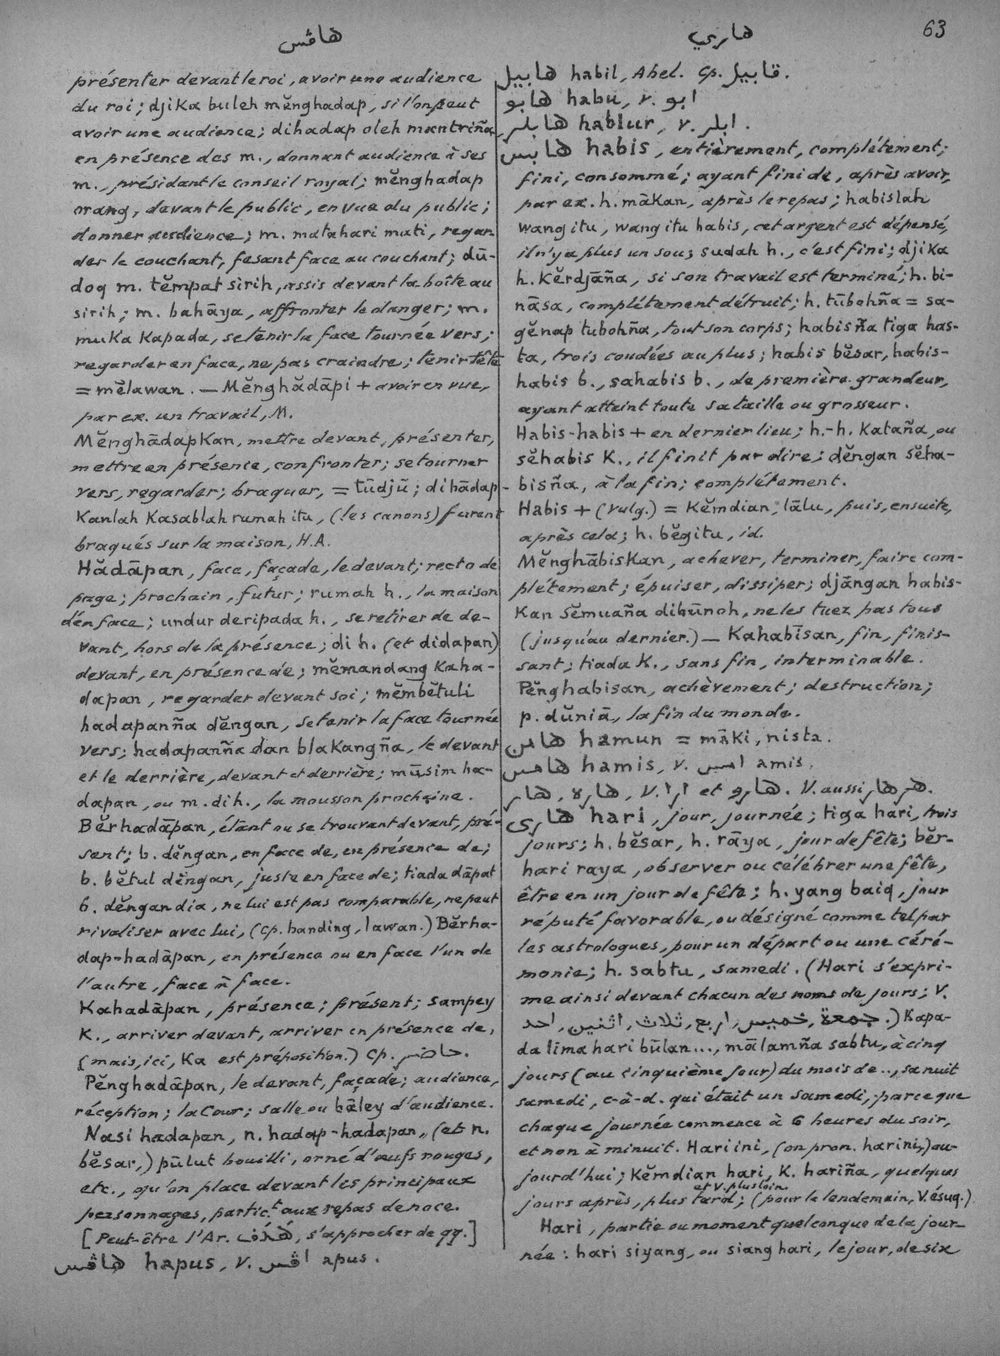 هاڤس
هاري
63
présenter devant le roi, avoir une audience
du roi; djika buleh mĕnghadap, si l'on peut
avoir une audience; dihadap oleh mantriña
en présence des m., donnant audience à ses
m., présidant le conseil royal; mĕnghadap
orang, devant le public, en vue du public;
donner audience; m. matahari mati, regar
der le couchant, fesant face au couchant; dū-
doq m. tĕmpat sirih, assis devant la boîte au
sirih; m. bahāya, affronter le danger; m.
muka kapada, se tenir la face tournée vers;
regarder en face, ne pas craindre; tenir tête
= mĕlawan. — Mĕnghădāpi + avoir en vue,
par ex. un travail, M.
Mĕnghādapkan, mettre devant, présenter,
mettre en présence, confronter; se tourner
vers, regarder; braquer, = tūdjū; dihādap-
kanlah kasablah rumah itu, (les canons) furent
braqués sur la maison, H.A.
Hădāpan, face, façade, le devant; recto de
page; prochain, futur; rumah h., la maison
d'en face; undur deripada h., se retirer de de-
vant, hors de la présence; di h. (et didapan)
devant, en présence de; mĕmandang kaha-
dapan, regarder devant soi; mĕmbĕtuli
hadapanña dĕngan, se tenir la face tournée
vers; hadapanña dan blakangña, le devant
et le derrière, devant et derrière; mūsim ha-
dapan, ou m. di h., la mousson prochaine.
Bĕrhadāpan, étant ou se trouvant devant, pré-
sent; b. dĕngan, en face de, en présence de;
b. bĕtul dĕngan, juste en face de; tiada dāpat
b. dĕngan dia, ne lui est pas comparable, ne peut
rivaliser avec lui, (cp. banding, lawan.) Bĕrha-
dap-hadāpan, en présence ou en face l'un de
l'autre, face à face.
Kahadāpan, présence; présent; sampey
k., arriver devant, arriver en présence de,
(mais, ici, ka est préposition.) cp. حاضر.
Pĕnghadāpan, le devant, façade; audience,
réception; la Cour; salle ou bāley d'audience.
Nasi hadapan, n. hadap-hadapan, (et n.
bĕsar,) pūlut bouilli, orné d'œufs rouges,
etc., qu'on place devant les principaux
personnages, partic.t aux repas de noce.
[Peut-être l'Ar. هَدَفَ, s'approcher de qq.]
هاڤس hapus, v. اڤس apus.
هابيل habil, Abel. cp. قابيل.
هابو habu, v. ابو
هابلر hablur, v. ابلر.
هابس habis, entièrement, complétement;
fini, consommé; ayant fini de, après avoir,
par ex. h. mākan, après le repas; habislah
wang itu, wang itu habis, cet argent est dépensé,
il n'y a plus un sou; sudah h., c'est fini; djika
h. kĕrdjāña, si son travail est terminé; h. bi-
nāsa, complétement détruit; h. tūbohña = sa-
gĕnap tubohña, tout son corps; habisña tiga has-
ta, trois coudées au plus; habis bĕsar, habis-
habis b., sahabis b., de première grandeur,
ayant atteint toute sa taille ou grosseur.
Habis-habis + en dernier lieu; h.-h. kataña, ou
sĕhabis k., il finit par dire; dĕngan sĕha-
bisña, à la fin; complétement.
Habis + (vulg.) = kĕmdian, lālu, puis, ensuite,
après cela; h. bĕgitu, id.
Mĕnghābiskan, achever, terminer, faire com-
plétement; épuiser, dissiper; djāngan habis-
kan sĕmuaña dibūnoh, ne les tuez pas tous
(jusqu'au dernier.) — Kahabīsan, fin, finis-
sant; tiada k., sans fin, interminable.
Pĕnghabisan, achèvement; destruction;
p. dŭniā, la fin du monde.
هامن hamun = māki, nista.
هامس hamis, v. امس amis.
هارو, هاره, هار, v. ارا et هارو. v. aussi هرهار.
هاري hari, jour, journée; tiga hari, trois
jours; h. bĕsar, h. rāya, jour de fête; bĕr-
hari raya, observer ou célébrer une fête,
être en un jour de fête; h. yang baiq, jour
réputé favorable, ou désigné comme tel par
les astrologues, pour un départ ou une céré-
monie; h. sabtu, samedi. (Hari s'expri-
me ainsi devant chacun des noms de jours; v.
احد, اثنين, ثلاث, اربع, خميس, جمعة.) Kapa-
da līma hari būlan..., mālamña sabtu, à cinq
jours (au cinquième jour) du mois de..., sa nuit
samedi, c-à-d. qui était un samedi, parce que
chaque journée commence à 6 heures du soir,
et non à minuit. Hari ini, (on pron. harini,) au-
jourd'hui; kĕmdian hari, k. hariña, quelques
jours après, plus tard; et v. plus loin. (pour le lendemain, v. ésuq.)
Hari, partie ou moment quelconque de la jour-
née: hari siyang, ou siang hari, le jour, de six